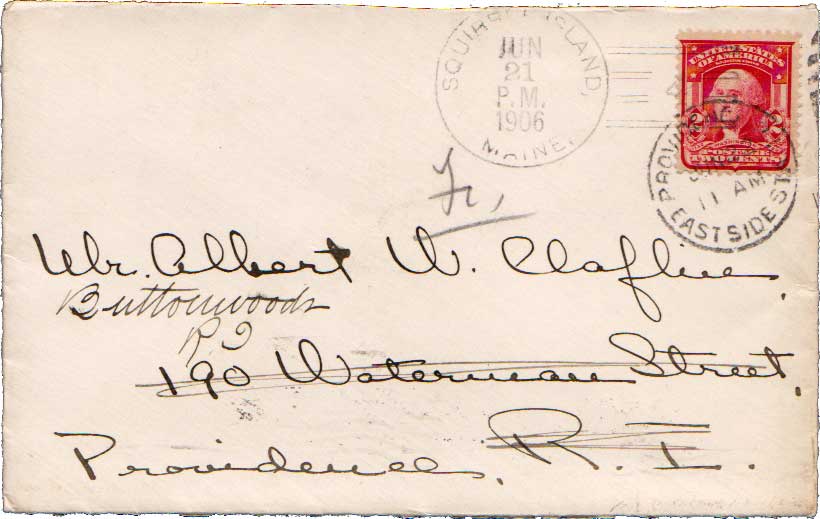 SQUIRREL ISLAND,
JUN
21
P.M.
1906
MAINE.
UNITED STATES
OF AMERICA
PROVIDENCE
11 AM
EAST SIDE STA.
Mr. Albert W. Claflin,
Buttonwoods
R.I
190 Waterman Street,
Providence, R. I.